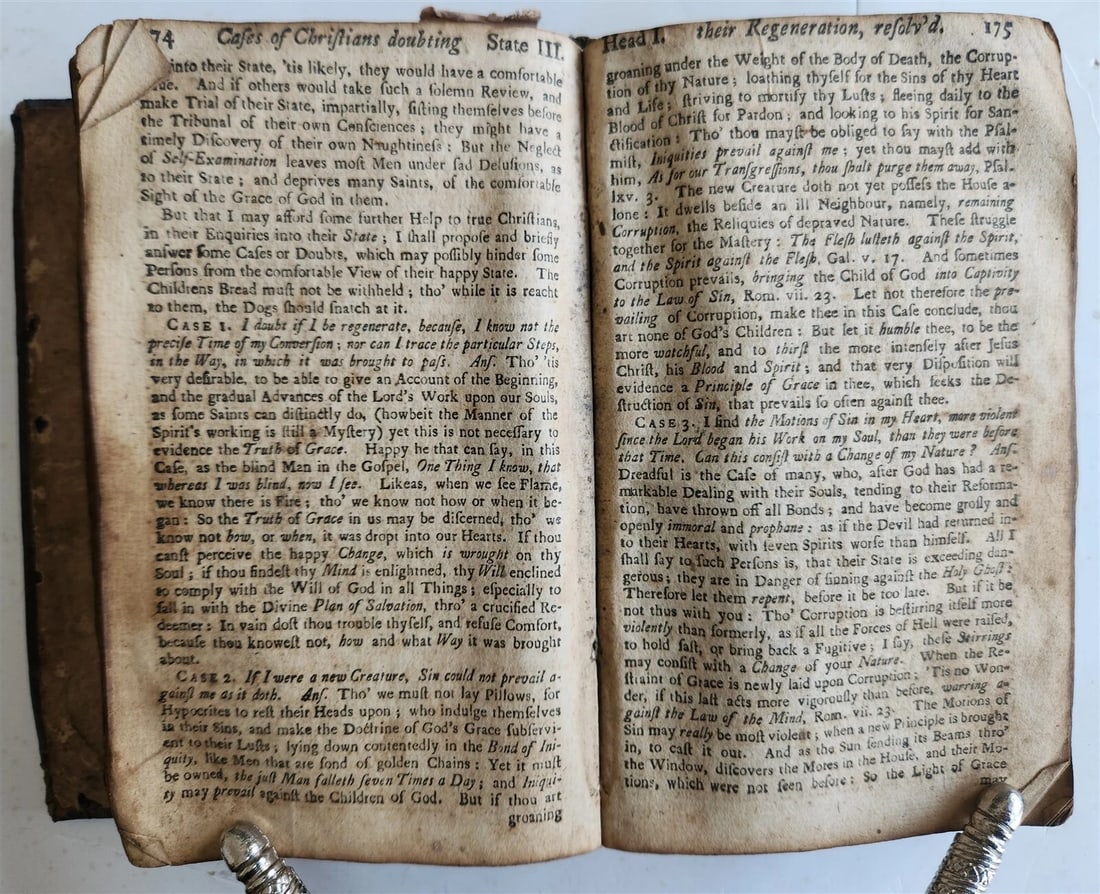 74 Caſes of Chriſtians doubting State III.
into their State, 'tis likely, they would have a comfortable
And if others would take ſuch a ſolemn Review, and
make Trial of their State, impartially, ſiſting themſelves before
the Tribunal of their own Conſciences ; they might have a
timely Diſcovery of their own Naughtineſs : But the Neglect
of Self-Examination leaves moſt Men under ſad Deluſions, as
to their State ; and deprives many Saints, of the comfortable
Sight of the Grace of God in them.
But that I may afford ſome further Help to true Chriſtians,
in their Enquiries into their State ; I ſhall propoſe and briefly
anſwer ſome Caſes or Doubts, which may poſſibly hinder ſome
Perſons from the comfortable View of their happy State. The
Childrens Bread muſt not be withheld ; tho' while it is reacht
to them, the Dogs ſhould ſnatch at it.
CASE 1. I doubt if I be regenerate, becauſe, I know not the
preciſe Time of my Converſion ; nor can I trace the particular Steps,
in the Way, in which it was brought to paſs. Anſ. Tho' 'tis
very deſirable, to be able to give an Account of the Beginning,
and the gradual Advances of the Lord's Work upon our Souls,
as ſome Saints can diſtinctly do, (howbeit the Manner of the
Spirit's working is ſtill a Myſtery) yet this is not neceſſary to
evidence the Truth of Grace. Happy he that can ſay, in this
Caſe, as the blind Man in the Goſpel, One Thing I know, that
whereas I was blind, now I ſee. Likeas, when we ſee Flame,
we know there is Fire ; tho' we know not how or when it be-
gan : So the Truth of Grace in us may be diſcerned, tho' we
know not how, or when, it was dropt into our Hearts. If thou
canſt perceive the happy Change, which is wrought on thy
Soul ; if thou findeſt thy Mind is enlightned, thy Will enclined
to comply with the Will of God in all Things ; eſpecially to
fall in with the Divine Plan of Salvation, thro' a crucified Re-
deemer : In vain doſt thou trouble thyſelf, and refuſe Comfort,
becauſe thou knoweſt not, how and what Way it was brought
about.
CASE 2. If I were a new Creature, Sin could not prevail a-
gainſt me as it doth. Anſ. Tho' we muſt not lay Pillows, for
Hypocrites to reſt their Heads upon ; who indulge themſelves
in their Sins, and make the Doctrine of God's Grace ſubſervi-
ent to their Luſts ; lying down contentedly in the Bond of Ini-
quity, like Men that are fond of golden Chains : Yet it muſt
be owned, the juſt Man falleth ſeven Times a Day ; and Iniqui-
ty may prevail againſt the Children of God. But if thou art
groaning
Head I. their Regeneration, reſolv'd. 175
groaning under the Weight of the Body of Death, the Corrup-
tion of thy Nature ; loathing thyſelf for the Sins of thy Heart
and Life ; ſtriving to mortify thy Luſts ; fleeing daily to the
Blood of Chriſt for Pardon ; and looking to his Spirit for San-
ctification : Tho' thou mayſt be obliged to ſay with the Pſal-
miſt, Iniquities prevail againſt me ; yet thou mayſt add with
him, As for our Tranſgreſſions, thou ſhalt purge them away, Pſal.
lxv. 3. The new Creature doth not yet poſſeſs the Houſe a-
lone : It dwells beſide an ill Neighbour, namely, remaining
Corruption, the Reliquies of depraved Nature. Theſe ſtruggle
together for the Maſtery : The Fleſh luſteth againſt the Spirit,
and the Spirit againſt the Fleſh, Gal. v. 17. And ſometimes
Corruption prevails, bringing the Child of God into Captivity
to the Law of Sin, Rom. vii. 23. Let not therefore the pre-
vailing of Corruption, make thee in this Caſe conclude, thou
art none of God's Children : But let it humble thee, to be the
more watchful, and to thirſt the more intenſely after Jeſus
Chriſt, his Blood and Spirit ; and that very Diſpoſition will
evidence a Principle of Grace in thee, which ſeeks the De-
ſtruction of Sin, that prevails ſo often againſt thee.
CASE 3. I find the Motions of Sin in my Heart, more violent
ſince the Lord began his Work on my Soul, than they were before
that Time. Can this conſiſt with a Change of my Nature ? Anſ.
Dreadful is the Caſe of many, who, after God has had a re-
markable Dealing with their Souls, tending to their Reforma-
tion, have thrown off all Bonds ; and have become groſly and
openly immoral and prophane : as if the Devil had returned in-
to their Hearts, with ſeven Spirits worſe than himſelf. All I
ſhall ſay to ſuch Perſons is, that their State is exceeding dan-
gerous ; they are in Danger of ſinning againſt the Holy Ghoſt :
Therefore let them repent, before it be too late. But if it be
not thus with you : Tho' Corruption is beſtirring itſelf more
violently than formerly, as if all the Forces of Hell were raiſed,
to hold faſt, or bring back a Fugitive ; I ſay, theſe Stirrings
may conſiſt with a Change of your Nature. When the Re-
ſtraint of Grace is newly laid upon Corruption ; 'Tis no Won-
der, if this laſt acts more vigorouſly than before, warring a-
gainſt the Law of the Mind, Rom. vii. 23. The Motions of
Sin may really be moſt violent ; when a new Principle is brought
in, to caſt it out. And as the Sun ſending its Beams thro'
the Window, diſcovers the Motes in the Houſe, and their Mo-
tions, which were not ſeen before : So the Light of Grace
may